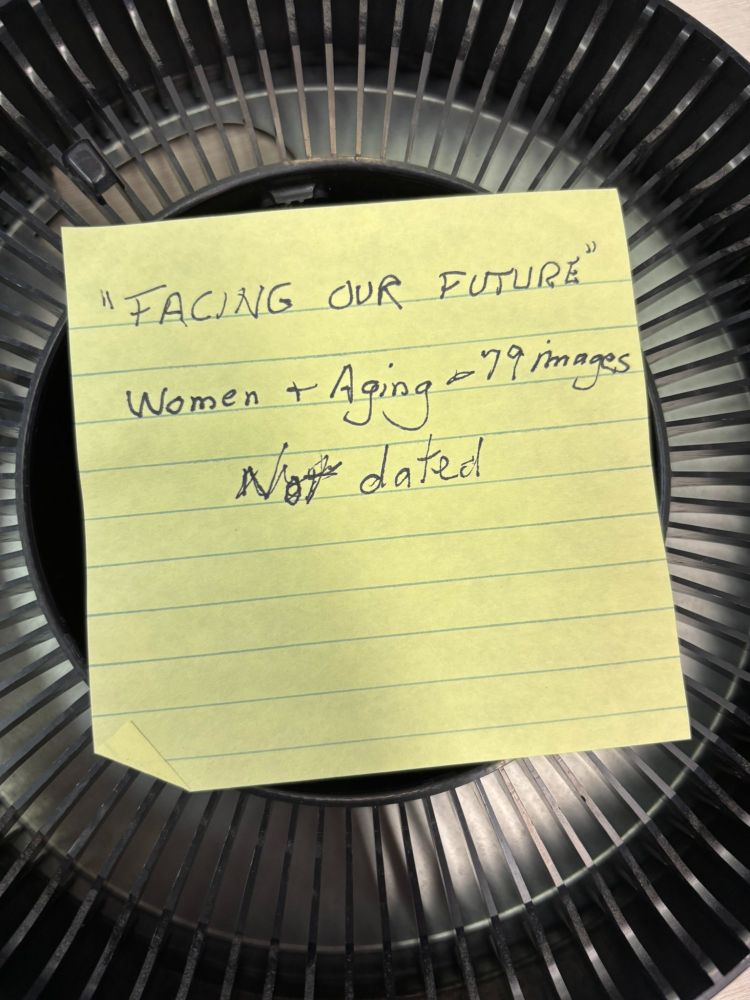 "FACING OUR FUTURE"
Women + Aging - 79 images
Not dated